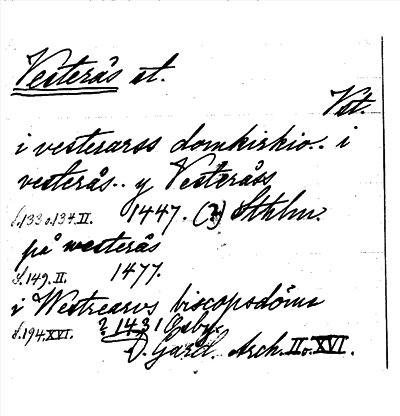 Vesterås st.
Vst.
i vesterarss domkirkio.. i
vesterås.. y Vesteråss
s.133 o.134.II. 1447. (?) Sthlm.
på westerås
s.149.II. 1477.
i Westrearos biscopsdöme
s.194.XVI. ? 1431
D. Gard. Arch. II o. XVI.